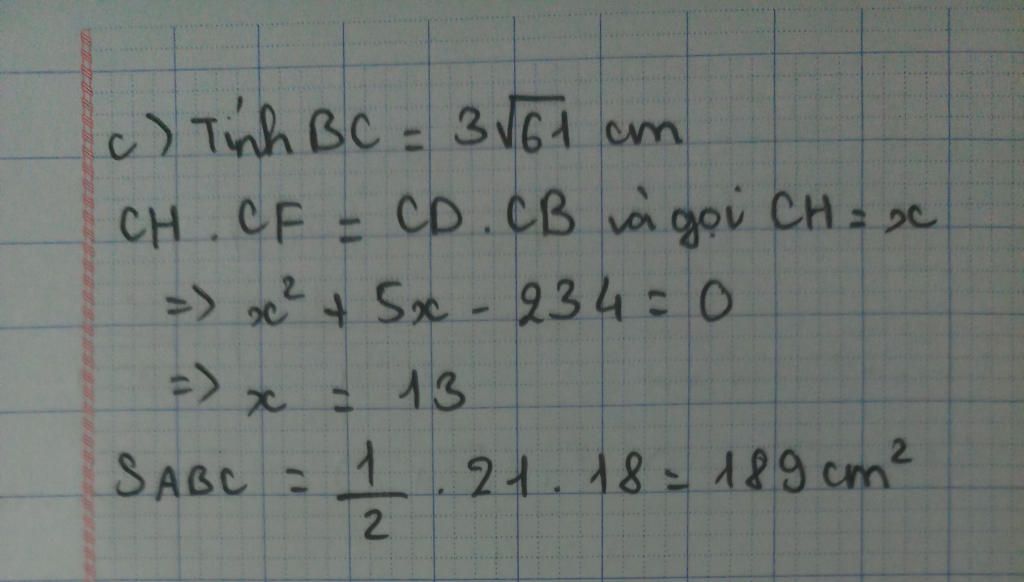 c) Tính BC = 3√61 cm
CH . CF = CD . CB và gọi CH = x
=> x² + 5x - 234 = 0
=> x = 13
SABC = 1/2 . 21 . 18 = 189 cm²